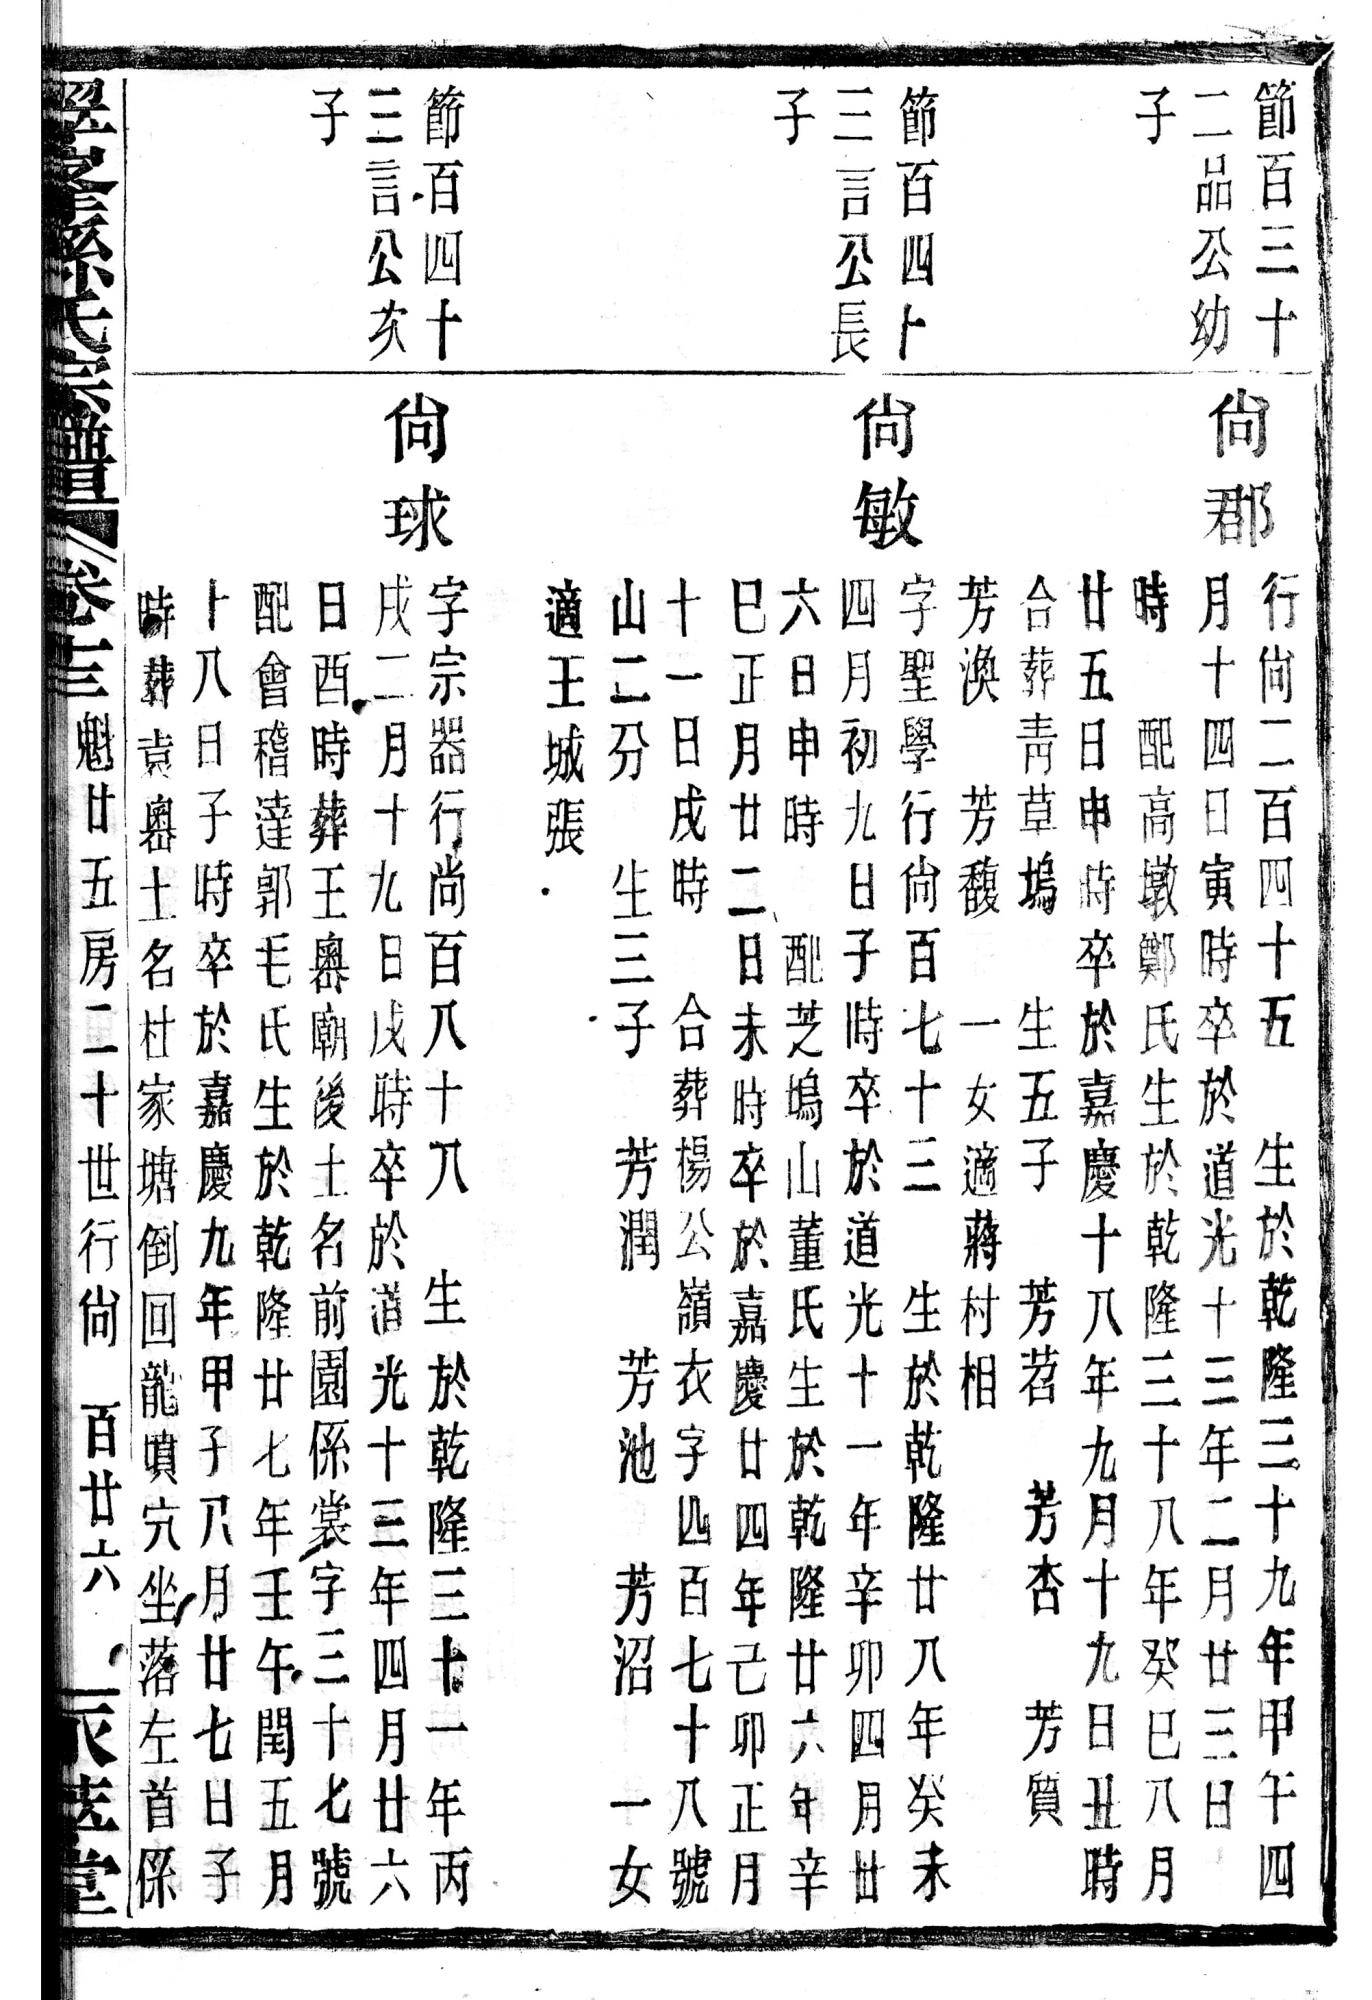 節百三十
二品公幼
子
尙郡
行尙二百四十五　生於乾隆三十九年甲午四
月十四日寅時卒於道光十三年二月廿三日
時　配高墩鄭氏生於乾隆三十八年癸巳八月
廿五日申時卒於嘉慶十八年九月十九日丑時
合葬靑草塢　生五子　芳苕　芳杏　芳質
芳渙　芳馥　一女適蔣村相
節百四十
三言公長
子
尙敏
字聖學行尙百七十三　生於乾隆廿八年癸未
四月初九日子時卒於道光十一年辛卯四月廿
六日申時　配芝塢山董氏生於乾隆廿六年辛
巳正月廿二日未時卒於嘉慶廿四年己卯正月
十一日戌時　合葬楊公嶺衣字四百七十八號
山二分　生三子　芳潤　芳池　芳沼　一女
適王城張
節百四十
三言公次
子
尙球
字宗器行尚百八十八　生於乾隆三十一年丙
戌二月十九日戌時卒於道光十三年四月廿六
日酉時葬王嶴廟後土名前園係裳字三十七號
配會稽達郭毛氏生於乾隆廿七年壬午閏五月
十八日子時卒於嘉慶九年甲子八月廿七日子
時葬袁嶴土名杜家塘倒回龍墳穴坐落左首係
孫氏宗譜　卷十三　魁廿五房二十世行尙　百廿六　堂